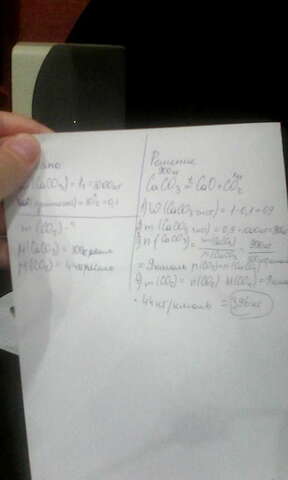 Дано
m(CaCO₃) = 1т = 1000кг
W(примесей) = 10% = 0,1
m(CO₂) - ?
M(CaCO₃) = 100кг/кмоль
M(CO₂) = 44кг/кмоль
Решение
900кг
CaCO₃ ⇄ CaO + CO₂
1) W(CaCO₃ чист) = 1 - 0,1 = 0,9
2) m(CaCO₃ чист) = 0,9 · 1000кг = 900кг
3) n(CaCO₃) = m(CaCO₃) / M(CaCO₃) = 900кг / 100кг/кмоль
= 9 кмоль n(CO₂) = n(CaCO₃)
4) m(CO₂) = n(CO₂) · M(CO₂) = 9кмоль
· 44кг/кмоль = 396кг